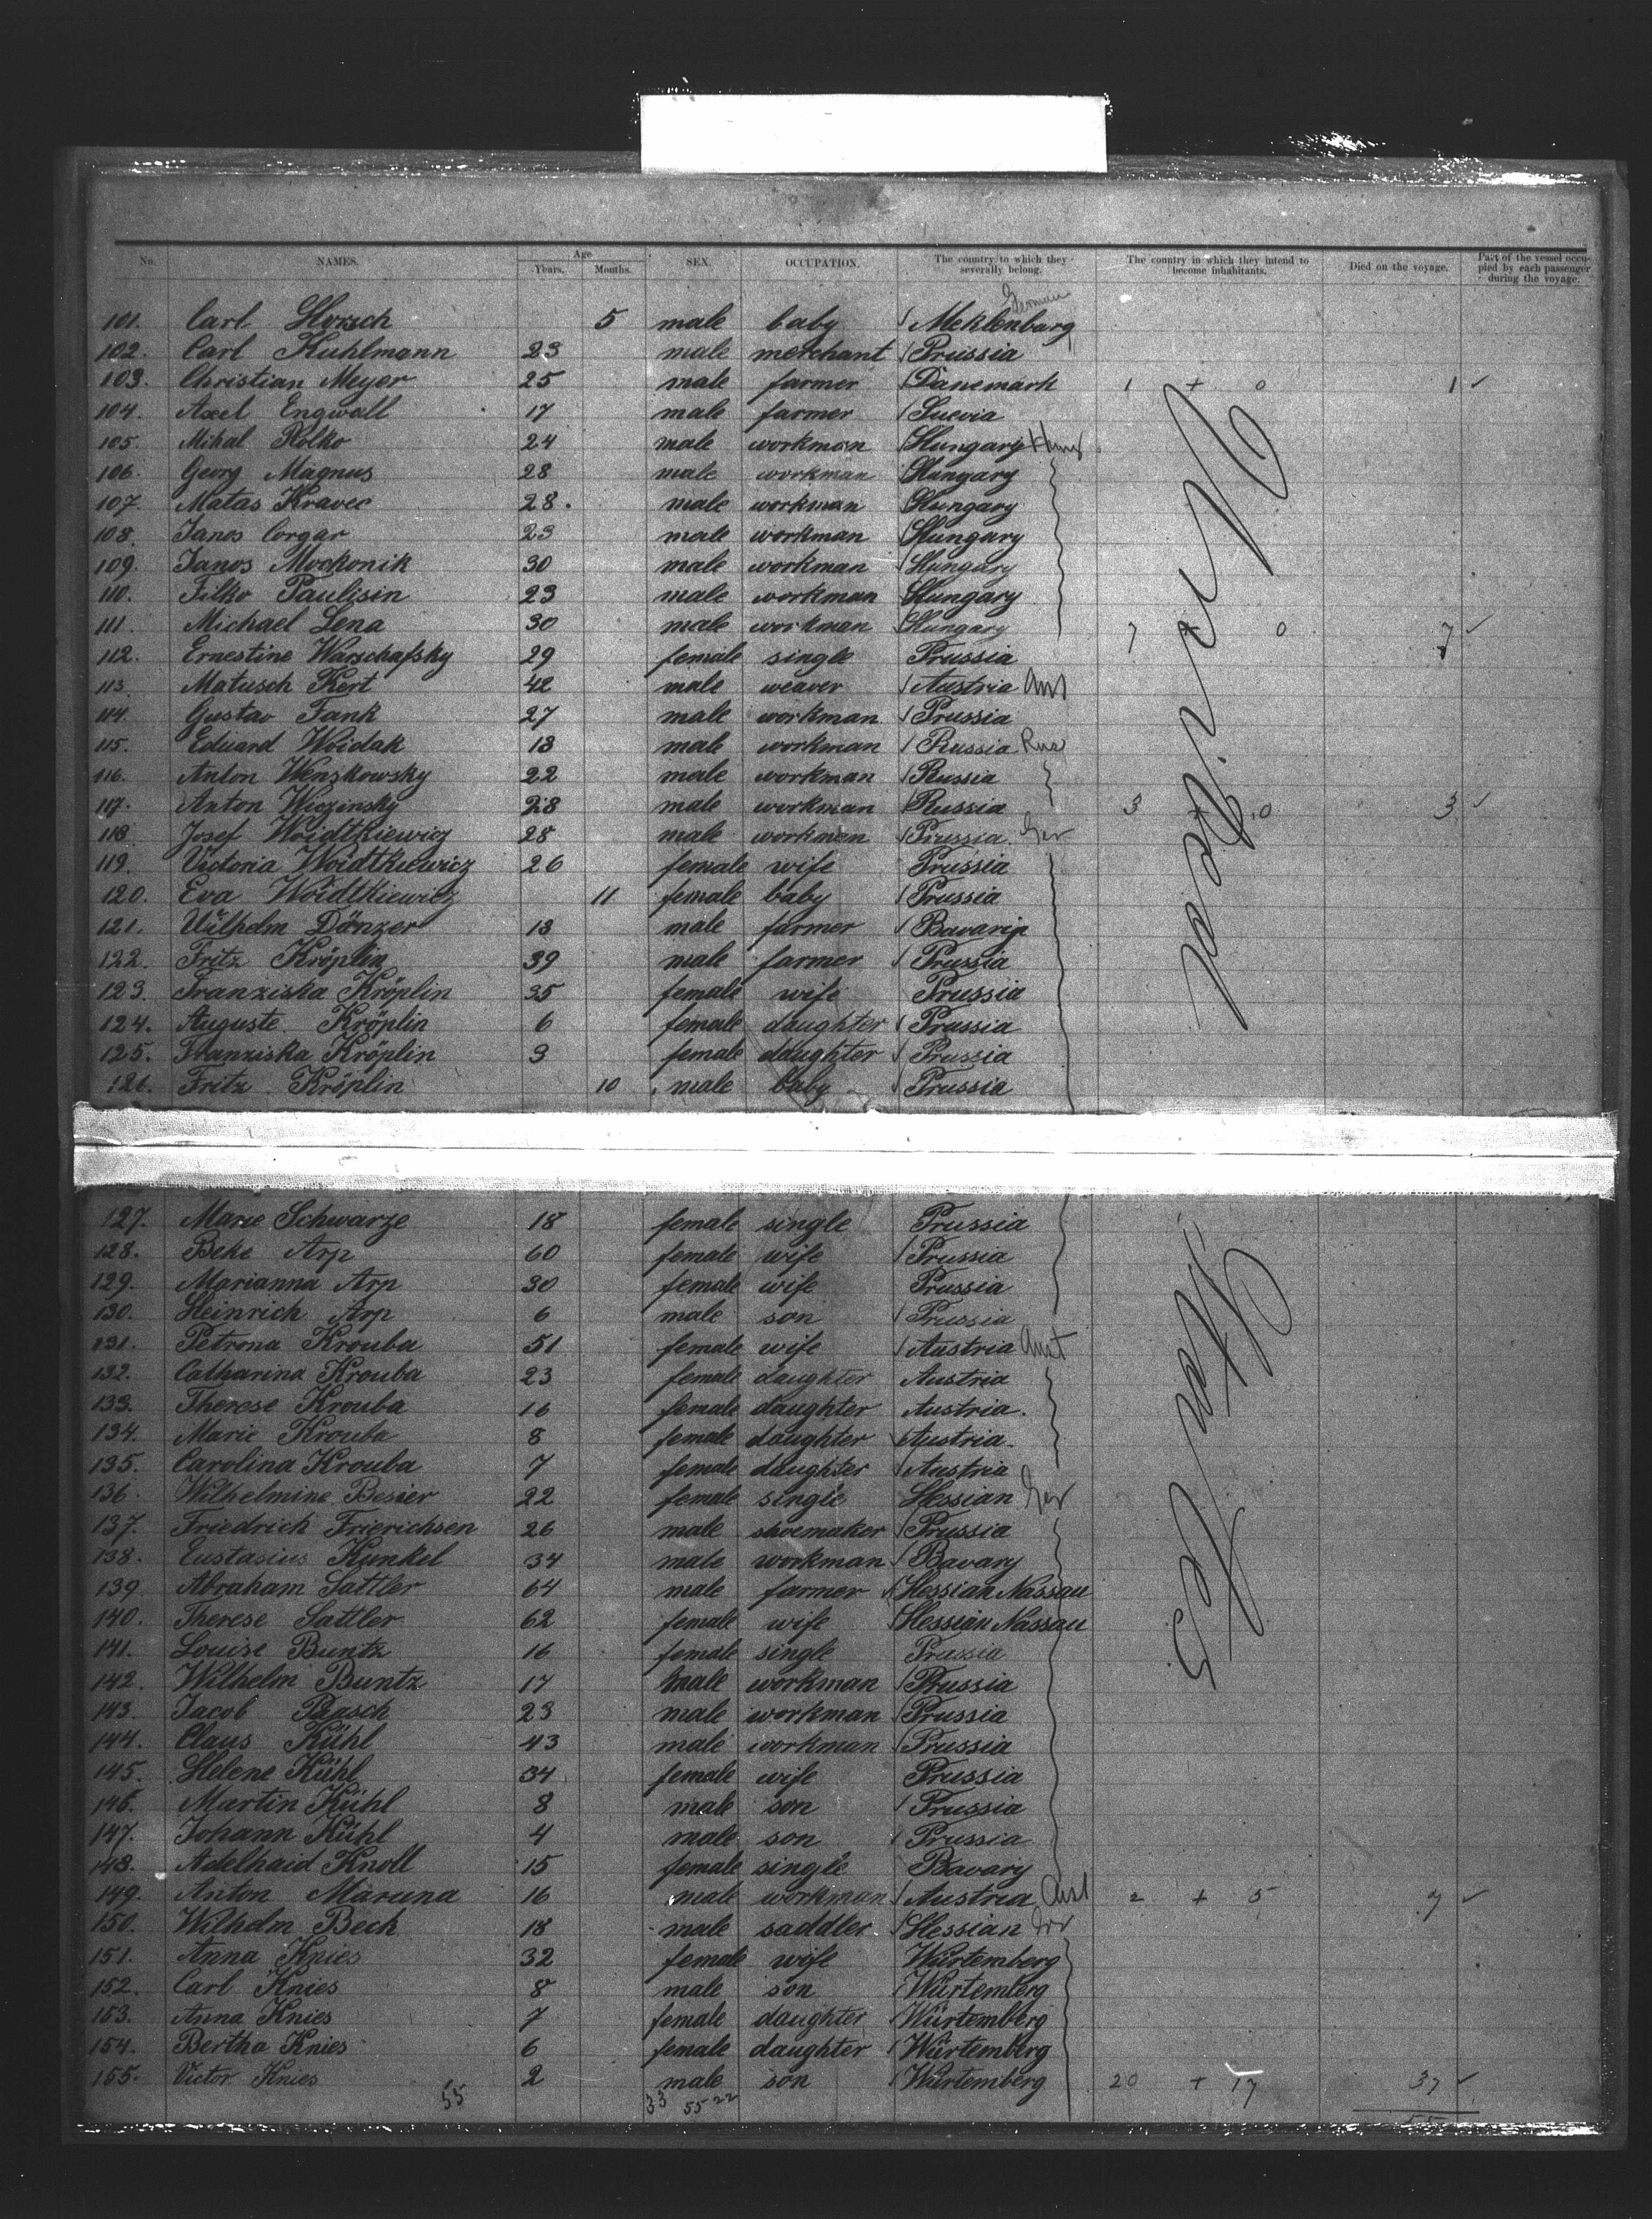 No. NAMES. Age Years. Months. SEX. OCCUPATION. The country to which they severally belong. The country in which they intend to become inhabitants. Died on the voyage. Part of the vessel occupied by each passenger during the voyage.
German
101. Carl Horsch 5 male baby Meklenburg
102. Carl Kuhlmann 23 male merchant Prussia
103. Christian Meyer 25 male farmer Danemark 1 + 0 1
104. Axel Engwall 17 male farmer Suevia
105. Mihal Rolko 24 male workman Hungary Hung
106. Georg Magnus 28 male workman Hungary
107. Matas Kravec 28. male workman Hungary
108. Janos Corgar 23 male workman Hungary
109. Janos Mockonik 30 male workman Hungary
110. Filko Paulisin 23 male workman Hungary
111. Michael Lena 30 male workman Hungary 7 + 0 7
112. Ernestine Warschafsky 29 female single Prussia
113. Matusch Kert 42 male weaver Austria Aus
114. Gustav Fank 27 male workman Prussia
115. Eduard Woidak 18 male workman Russia Rus
116. Anton Wenskowsky 22 male workman Russia
117. Anton Wiczinsky 28 male workman Russia 3 + 0 3
118. Josef Woidtkiewicz 28 male workman Prussia Ger
119. Victoria Woidtkiewicz 26 female wife Prussia
120. Eva Woidtkiewicz 11 female baby Prussia
121. Wilhelm Dänzer 18 male farmer Bavaria
122. Fritz Kröplin 39 male farmer Prussia
123. Franziska Kröplin 35 female wife Prussia
124. Auguste Kröplin 6 female daughter Prussia
125. Franziska Kröplin 3 female daughter Prussia
126. Fritz Kröplin 10 male baby Prussia
127. Marie Schwarze 18 female single Prussia
128. Beke Arp 60 female wife Prussia
129. Marianna Arp 30 female wife Prussia
130. Heinrich Arp 6 male son Prussia
131. Petrona Krouba 51 female wife Austria Aust
132. Catharina Krouba 23 female daughter Austria
133. Therese Krouba 16 female daughter Austria.
134. Marie Krouba 8 female daughter Austria.
135. Carolina Krouba 7 female daughter Austria
136. Wilhelmine Besier 22 female single Hessian Ger
137. Friedrich Frierichsen 26 male shoemaker Prussia
138. Eustasius Kunkel 34 male workman Bavary
139. Abraham Sattler 64 male farmer Hessian Nassau
140. Therese Sattler 62 female wife Hessian Nassau
141. Louise Buntz 16 female single Prussia
142. Wilhelm Buntz 17 male workman Prussia
143. Jacob Paasch 23 male workman Prussia
144. Claus Kühl 43 male workman Prussia
145. Helene Kühl 34 female wife Prussia
146. Martin Kühl 8 male son Prussia
147. Johann Kühl 4 male son Prussia
148. Adelhaid Knoll 15 female single Bavary
149. Anton Maruna 16 male workman Austria Aust 2 + 5 7
150. Wilhelm Beck 18 male saddler Hessian Ger
151. Anna Knies 32 female wife Würtemberg
152. Carl Knies 8 male son Würtemberg
153. Anna Knies 7 female daughter Würtemberg
154. Bertha Knies 6 female daughter Würtemberg
155. Victor Knies 2 male son Würtemberg 20 + 17 37
55 33 55 22 55